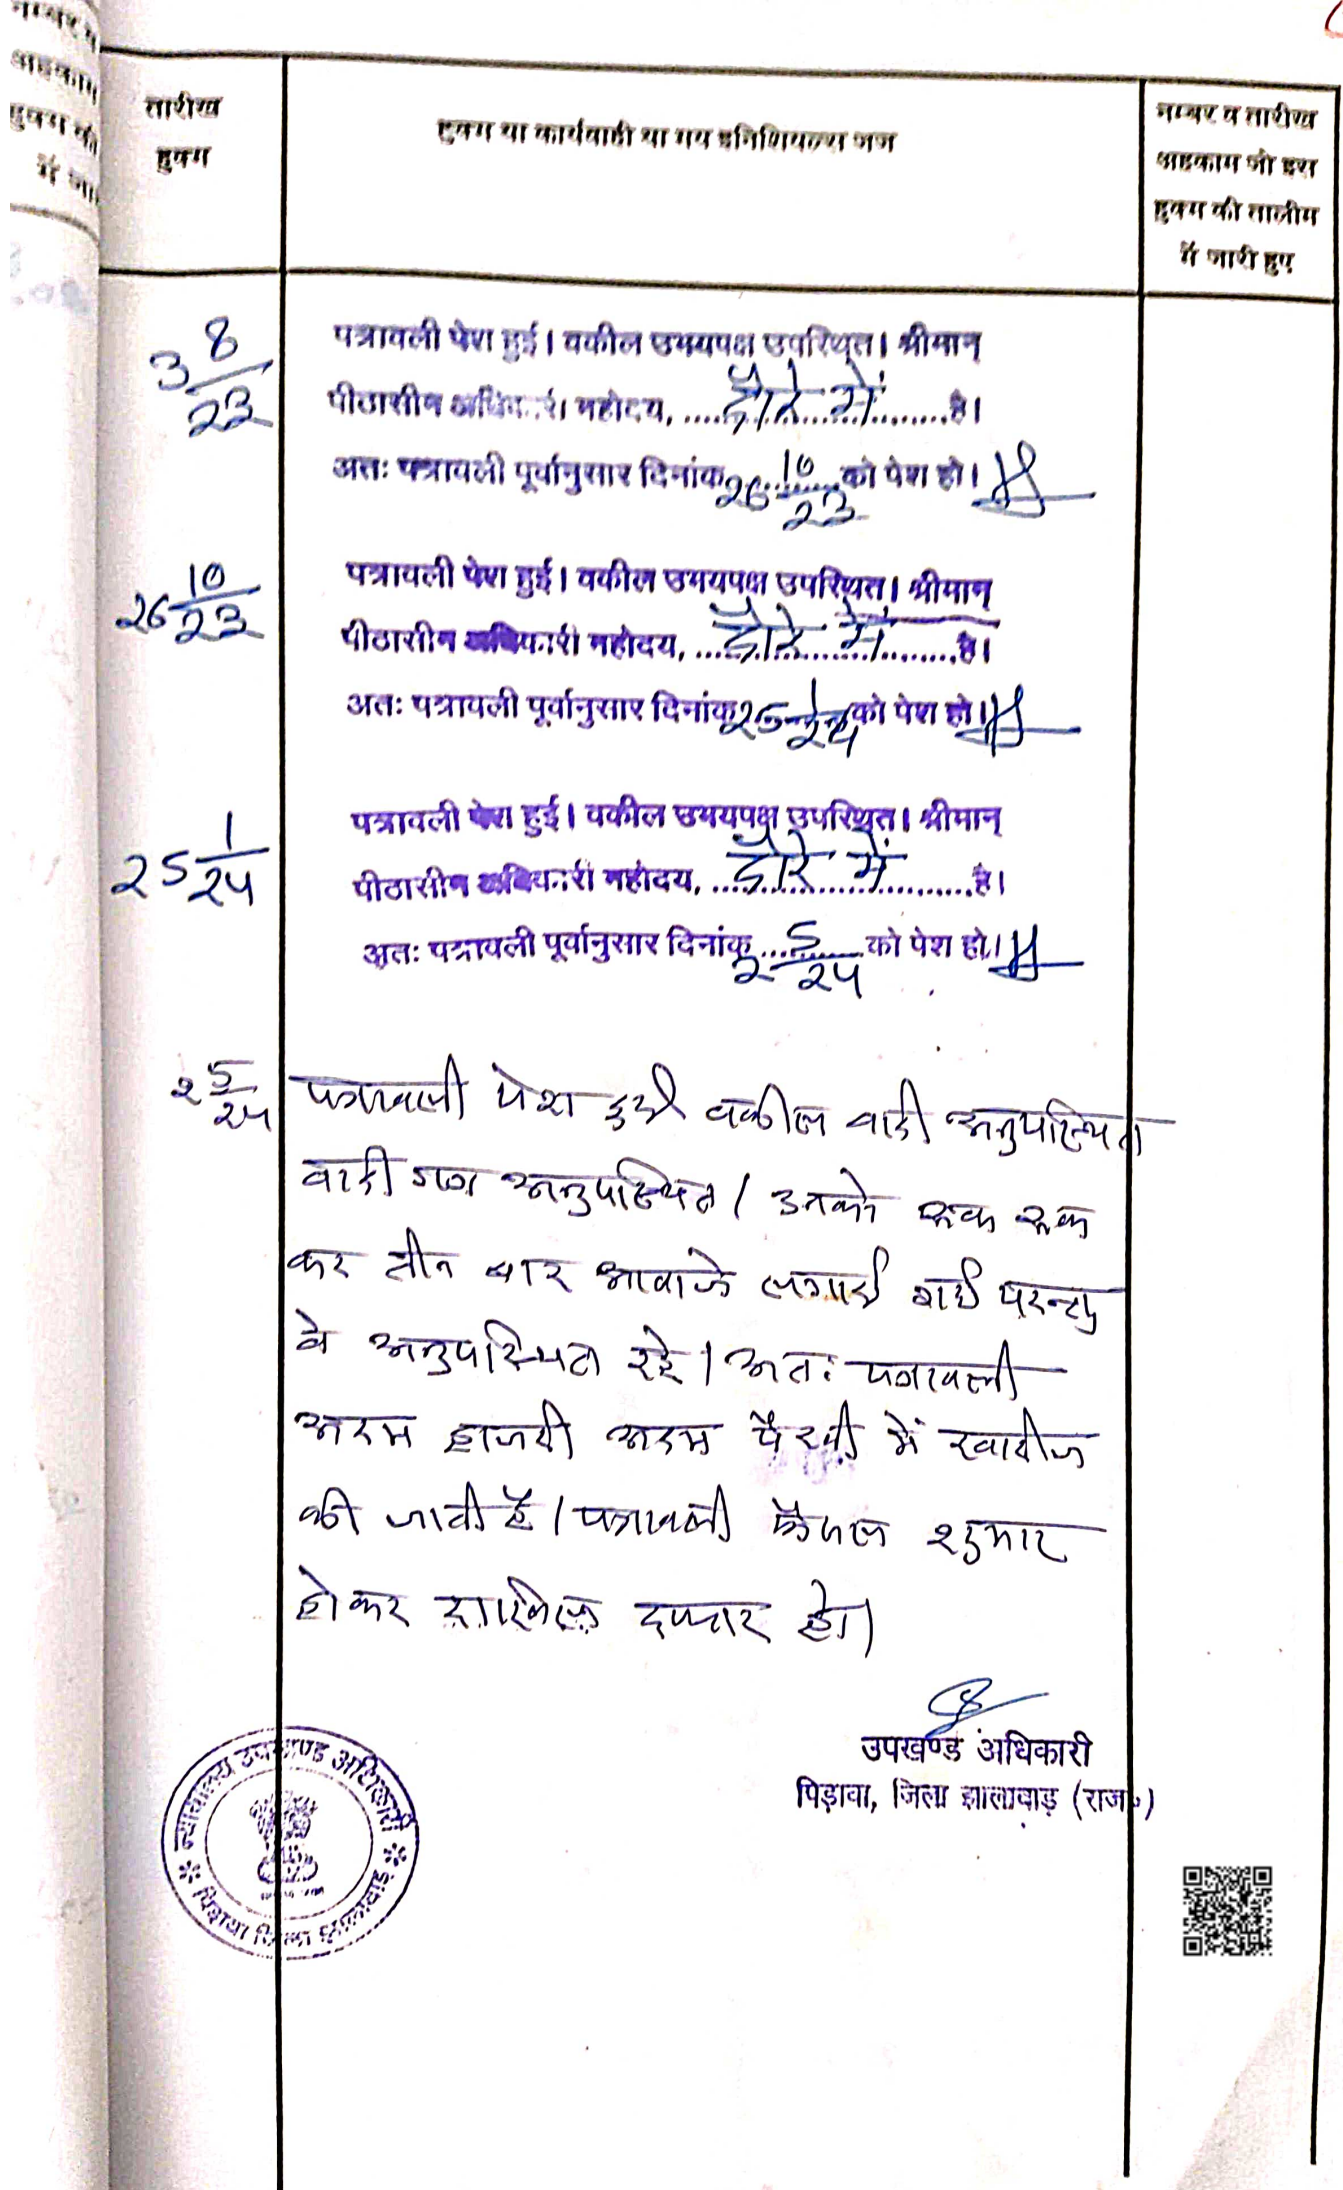 तारीख
हुक्म
हुक्म या कार्यवाही या मय इनिशियल्स जज
नम्बर व तारीख
अहकाम जो इस
हुक्म की तालीम
में जारी हुए
3 8/23
पत्रावली पेश हुई। वकील उभयपक्ष उपस्थित। श्रीमान्
पीठासीन अधिकारी महोदय, ....दौरे में....है।
अतः पत्रावली पूर्वानुसार दिनांक 26 10/23 को पेश हो।
26 10/23
पत्रावली पेश हुई। वकील उभयपक्ष उपस्थित। श्रीमान्
पीठासीन अधिकारी महोदय, ....दौरे में....है।
अतः पत्रावली पूर्वानुसार दिनांक 25 1/24 को पेश हो।
25 1/24
पत्रावली पेश हुई। वकील उभयपक्ष उपस्थित। श्रीमान्
पीठासीन अधिकारी महोदय, ....दौरे में....है।
अतः पत्रावली पूर्वानुसार दिनांक 2 5/24 को पेश हो।
2 5/24
पत्रावली पेश हुई वकील वादी अनुपस्थित
वादी गण अनुपस्थित। उनको रूक रूक
कर तीन बार आवाजे लगाई गई परन्तु
वे अनुपस्थित रहे। अतः पत्रावली
अदम हाजरी अदम पैरवी में खारीज
की जाती है। पत्रावली फैसल शुमार
होकर दाखिल दफ्तर हो।
उपखण्ड अधिकारी
पिड़ावा, जिला झालावाड़ (राज०)
न्यायालय उपखण्ड अधिकारी
पिड़ावा जिला झालावाड़